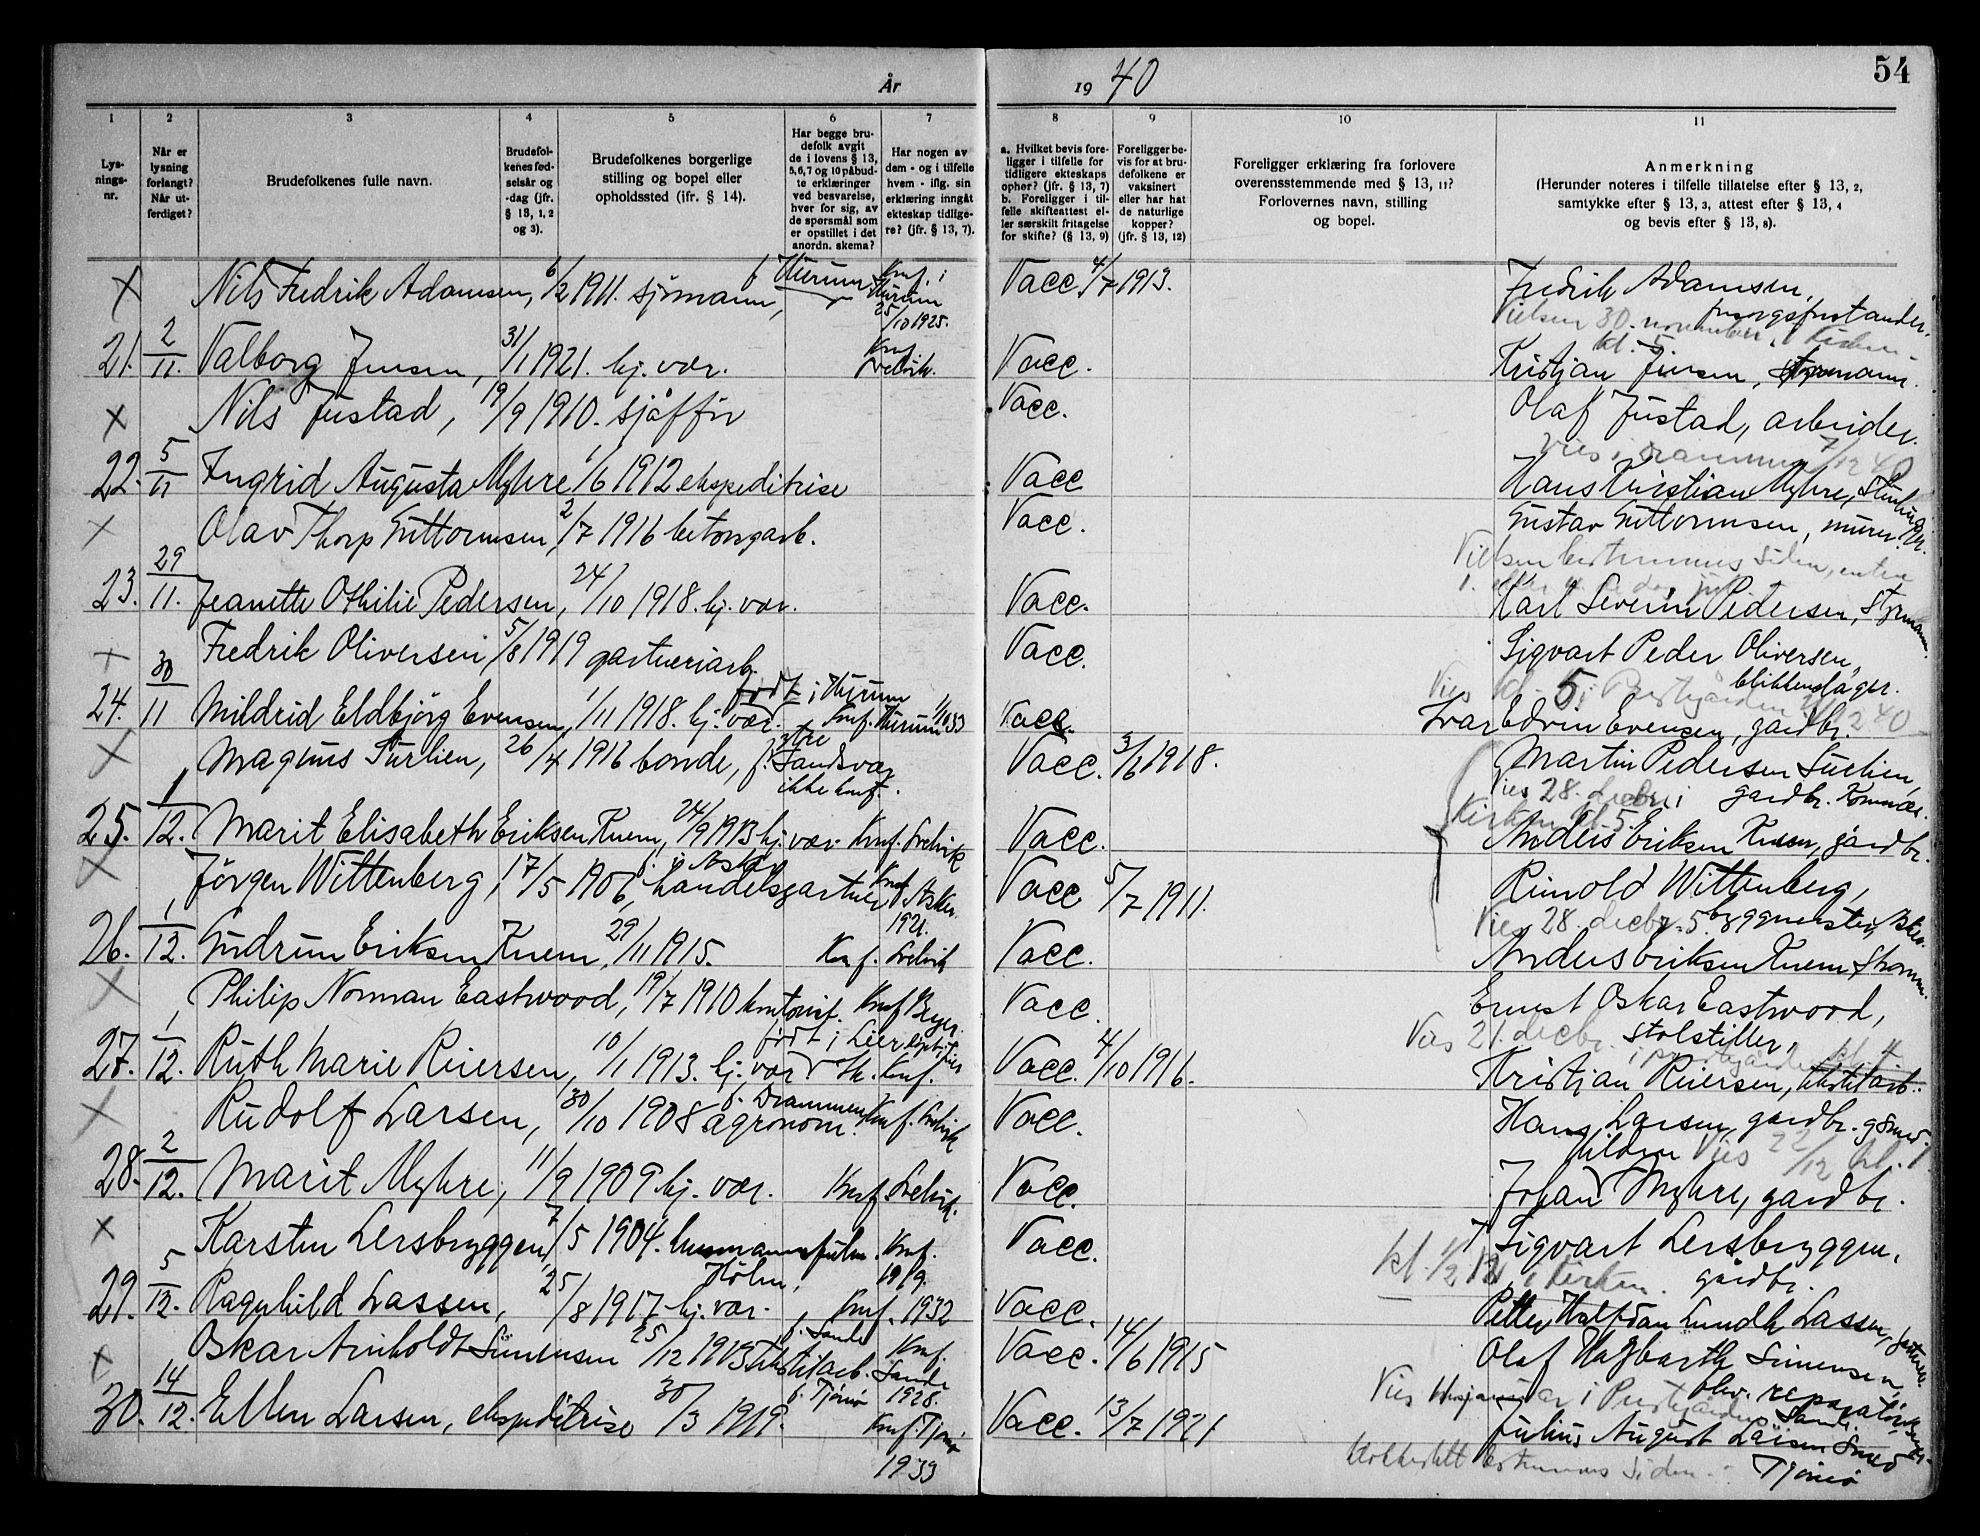 År
19 40
54
1 2 3 4 5 6 7 8 9 10 11
Lys-
nings-
nr.
Når er
lysning
forlangt?
Når ut-
ferdiget?
Brudefolkenes fulle navn.
Brudefol-
kenes fød-
selsår og
-dag (jfr.
§ 13, 1, 2
og 3).
Brudefolkenes borgerlige
stilling og bopel eller
opholdssted (ifr. § 14).
Har begge bru-
defolk avgit
de i lovens § 13,
5, 6, 7 og 10 påbud-
te erklæringer
ved besvarelse,
hver for sig, av
de spørsmål som
er opstillet i det
anordn. skema?
Har nogen av
dem - og i tilfelle
hvem - iflg. sin
erklæring inngåt
ekteskap tidlige-
re? (jfr. § 13, 7).
a. Hvilket bevis fore-
ligger i tilfelle for
tidligere ekteskaps
ophør? (jfr. § 13, 7)
b. Foreligger i til-
felle skifteattest el-
ler særskilt fritagelse
for skifte? (§ 13, 9)
Foreligger be-
vis for at bru-
defolkene er
vaksinert
eller har hat
de naturlige
kopper?
(jfr. § 13, 12)
Foreligger erklæring fra forlovere
overensstemmende med § 13, 11?
Forlovernes navn, stilling
og bopel.
Anmerkning
(Herunder noteres i tilfelle tillatelse efter § 13, 2,
samtykke efter § 13, 3, attest efter § 13, 4
og bevis efter § 13, 8).
x Nils Fredrik Adamsen, 6/2 1911. sjømann, f. Hurum Knf. i Hurum 25/10 1925. Vacc. 4/7 1913. Fredrik Adamsen,
30. november i Kirken
kl. 5
21. 2/11. Valborg Jensen, 31/1 1921. hj. vær. Knf. Svelvik. Vacc. Kristjan Jensen,
x Nils Justad, 19/9 1910. sjåffør Vacc. Olaf Justad, arbeider.
Vies i Drammen 7/12 40
22. 5/11 Ingrid Augusta Myhre 1/6 1912 ekspeditrise Vacc Hans Kristian Myhre,
x Olav Thorp Guttormsen, 2/7 1916 betongarb. Vacc. Gustav Guttormsen, murer.
Vielsen bestemmes siden,
23. 29/11. Jeanette Othilie Pedersen, 24/10 1918. hj. vær. Vacc. Karl Severin Pedersen, Styrmann.
x Fredrik Oliversen, 5/8 1919 gartneriarb. Vacc. Sigvart Peder Oliversen,
blikkenslager.
Vies kl. 5 i Prestegården 12 40
24. 30/11 Mildrid Eldbjørg Evensen, 1/11 1918. hj. vær. født i Hurum Knf. Hurum 1/10 33 Vacc. Ivar Edvin Evensen, gårdbr.
x Magnus Surlien, 26/4 1916 bonde, f. Sandsvær ikke knf. Vacc. 3/6 1918. Martin Pedersen Surlien,
gårdbr.
Vies 28. decbr i
Kirken kl 5.
25. 1/12. Marit Elisabeth Eriksen Knem, 24/9 1913 hj. vær. Knf. Svelvik Vacc. Anders Eriksen Knem, gårdbr.
x Jørgen Wittenberg, 17/5 1906, f. i Asker handelsgartner Knf Asker. 1921. Vacc 5/7 1911. Rinold Wittenberg,
byggmester, Asker.
Vies 28. decbr. 5.
26. 1/12. Gudrun Eriksen Knem, 29/11 1915. Knf. Svelvik Vacc. Anders Eriksen Knem
x Philip Norman Eastwood, 19/7 1910 kontorist. Knf. Vacc. Ernest Oskar Eastwood,
stolstiller,
Vies 21. decbr. i prestegården kl. 4
27. 1/12. Ruth Marie Reiersen, 10/1 1913. hj. vær født i Lier Knf. Vacc. 4/10 1916. Kristjan Reiersen, tekstilarb.
x Rudolf Larsen, 30/10 1908 agronom. f. Drammen Knf. Svelvik Vacc. Hans Larsen, gårdbr.
Vies 22/12 kl.
28. 2/12. Marit Myhre, 11/9 1909 hj. vær. Knf Svelvik. Vacc. Johan Myhre, gårdbr.
x Karsten Lersbryggen, 7/5 1904. Knf. 1919. Vacc. Sigvart Lersbryggen,
gårdbr.
i Kirken.
29. 5/12. Ragnhild Lassen, 25/8 1917 hj. vær. Knf. 1932 Vacc. Petter Halfdan Lundh Lassen,
x Oskar Arnholdt Simensen 25/12 1913 tekstilarb. f. Sande Knf. Sande 1928. Vacc. 14/6 1915 Olaf Hagbarth Simensen,
reparatør
Sande.
Vies i Prestegården
30. 14/12. Ellen Larsen, ekspeditrise 30/3 1919. f. Tjømø Knf. Tjømø 1933 Vacc. 13/7 1921 Julius August Larsen Smed
Tjømø
bestemmes siden.